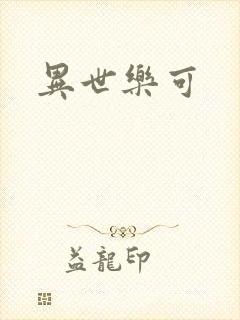 異世樂可
益龍印